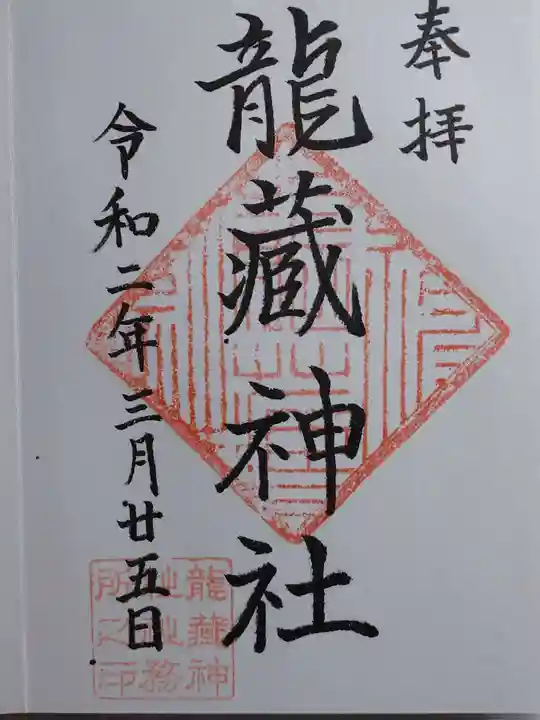 奉拝
龍蔵神社
令和二年三月廿五日
龍蔵神
社社務
所之印